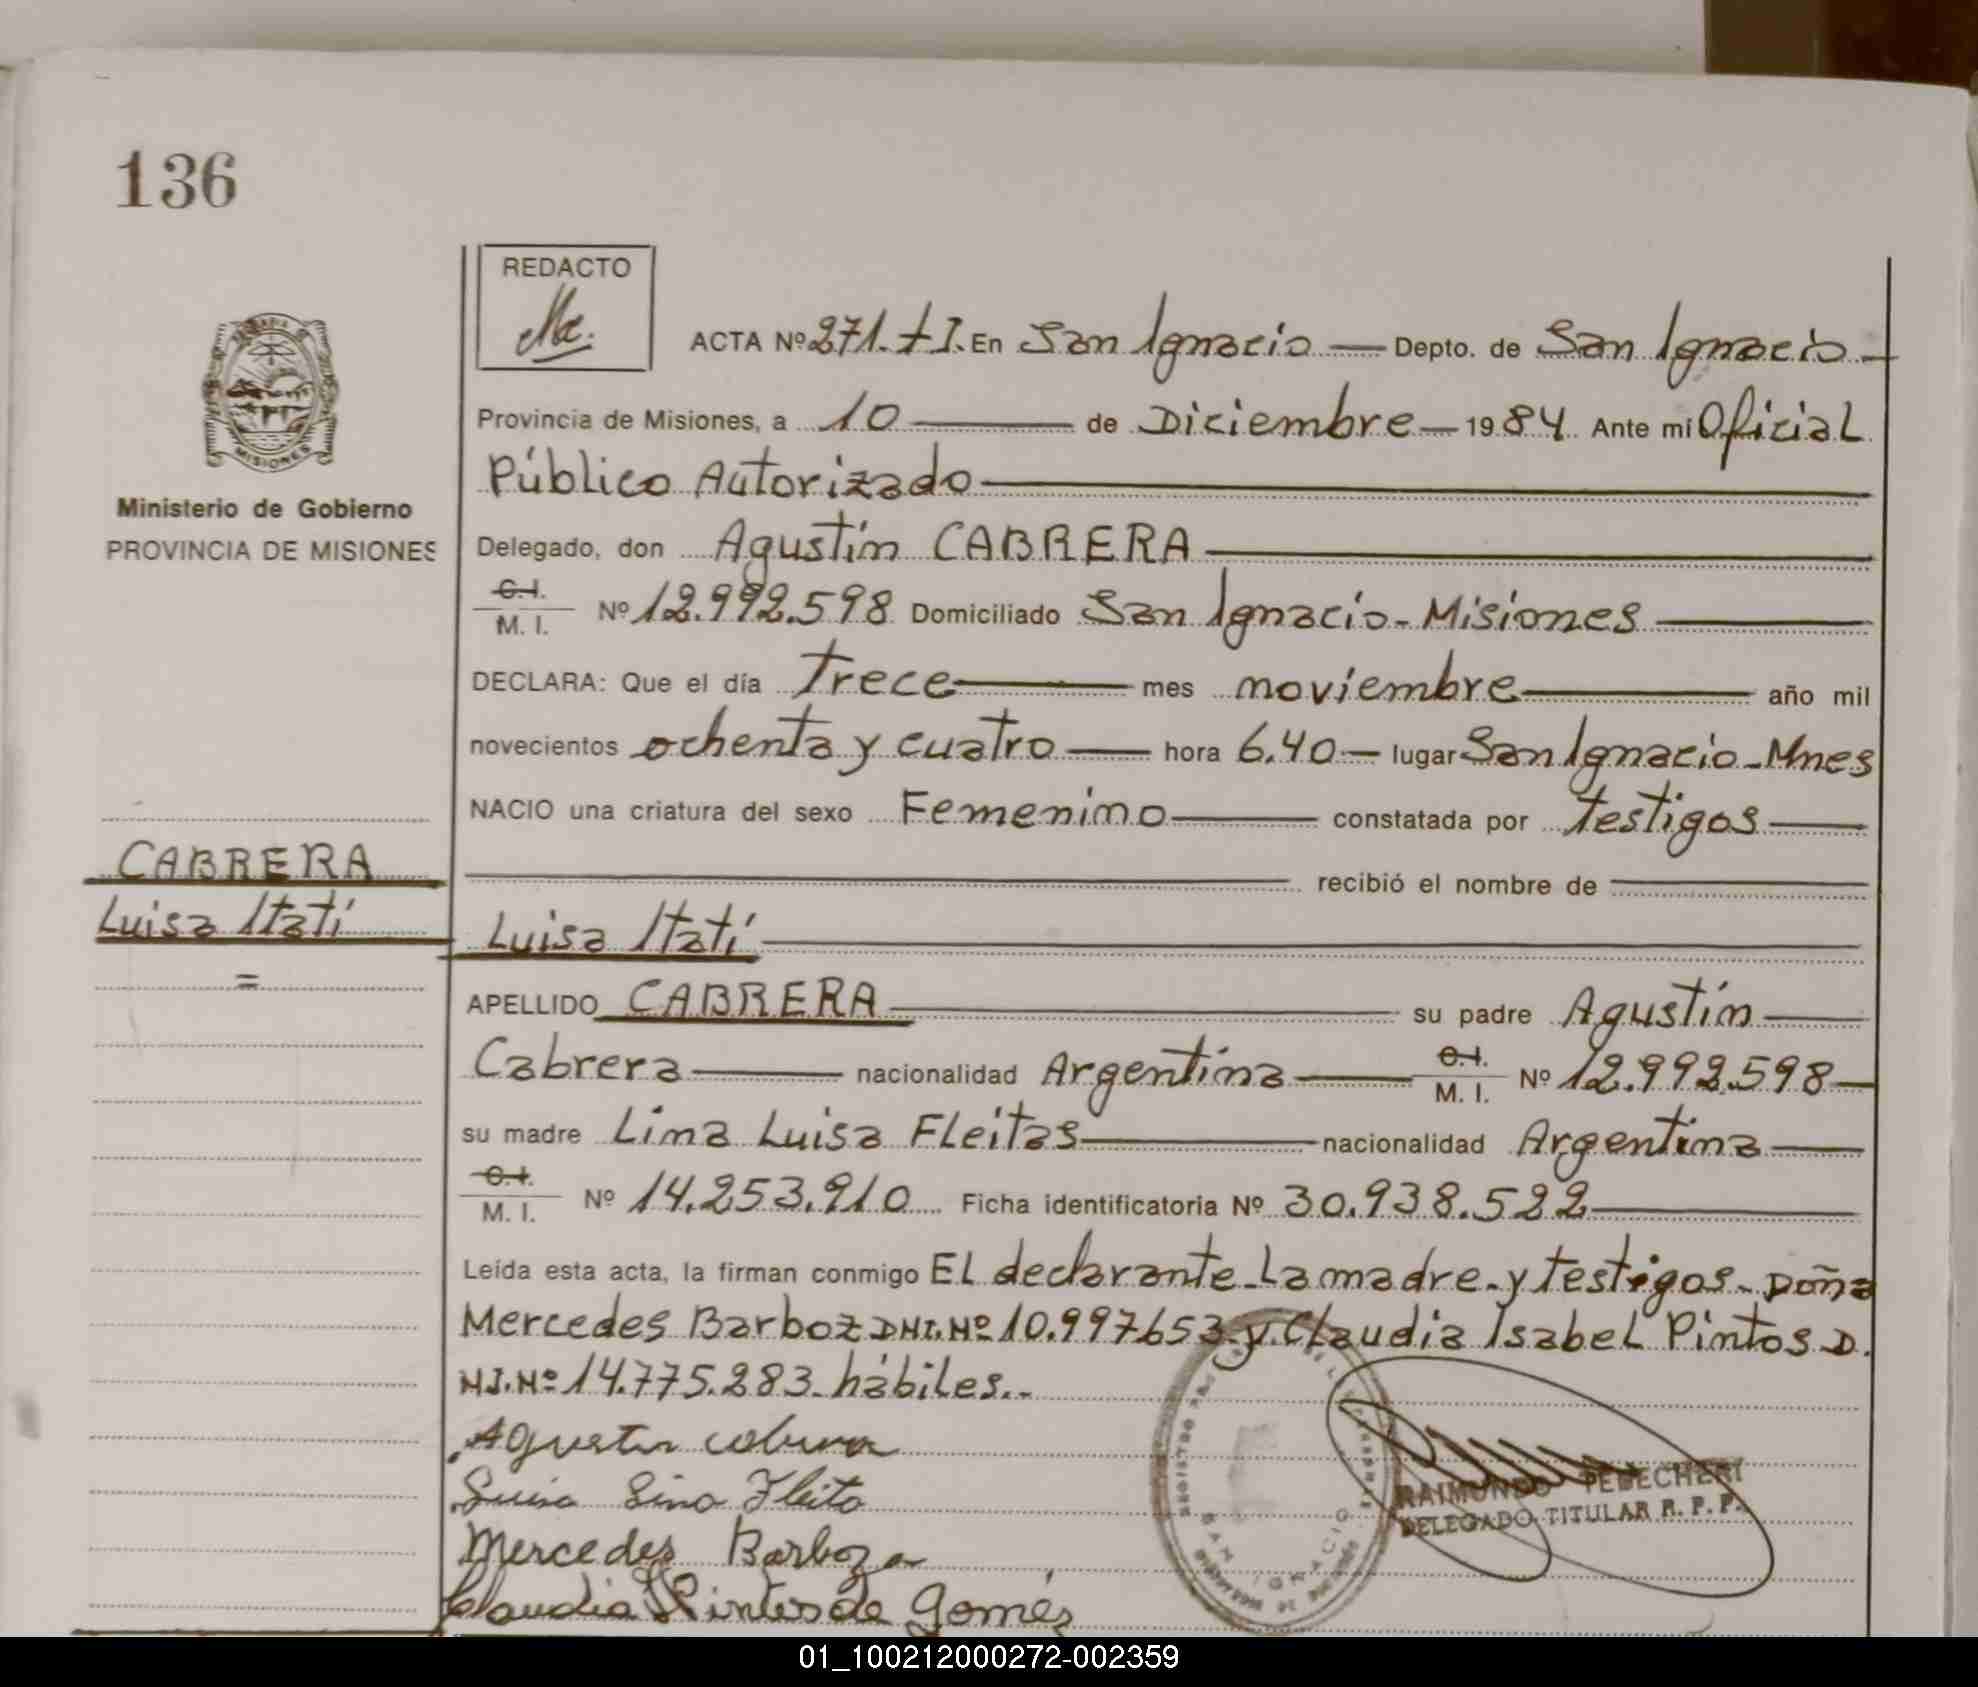 136
REDACTO
ACTA Nº 271. tI. En San Ignacio — Depto. de San Ignacio —
Provincia de Misiones, a 10 — de Diciembre — 1984. Ante mi Oficial
Público Autorizado
Ministerio de Gobierno
PROVINCIA DE MISIONES
MISIONES
Delegado, don Agustín CABRERA
C.I.
M. I. Nº 12.992.598 Domiciliado San Ignacio - Misiones
DECLARA: Que el día Trece — mes noviembre — año mil
novecientos ochenta y cuatro — hora 6.40 — lugar San Ignacio - Mnes
NACIO una criatura del sexo Femenino — constatada por testigos —
recibió el nombre de
CABRERA
Luisa Itatí
=
Luisa Itatí
APELLIDO CABRERA — su padre Agustín —
Cabrera — nacionalidad Argentina — C.I. M. I. Nº 12.992.598 —
su madre Lina Luisa Fleitas — nacionalidad Argentina —
C.I.
M. I. Nº 14.253.910 Ficha identificatoria Nº 30.938.522 —
Leída esta acta, la firman conmigo El declarante - La madre - y testigos - Doña
Mercedes Barboz DNI. Nº 10.997653 - y Claudia Isabel Pintos D.
NI. Nº 14.775.283 - hábiles. -
Agustin cabrera
Luisa Lina Fleita
Mercedes Barboza
Claudia Pintos de Gomés
SAN IGNACIO
RAIMUNDO PEBECHERI
DELEGADO TITULAR R. P. P.
01_100212000272-002359